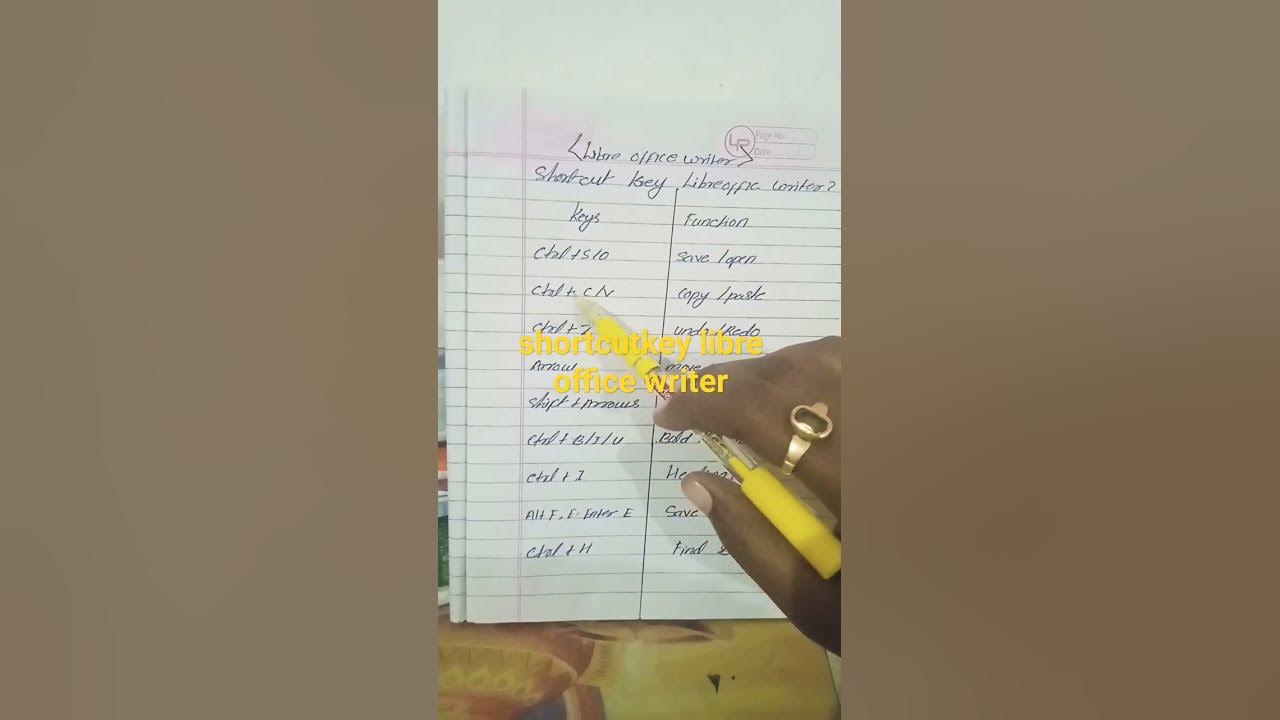 Page No.
Date
<Libre office writer>
Shortcut Key Libreoffic writer?
Keys Function
Ctrl + S/O Save /open
Ctrl + C/V Copy /paste
Ctrl + Z undo /Redo
shortcutkey libre
office writer
Arrow move
Shift + Arrows
Ctrl + B/I/U Bold
Ctrl + I
Alt F, E Enter E Save
Ctrl + H Find